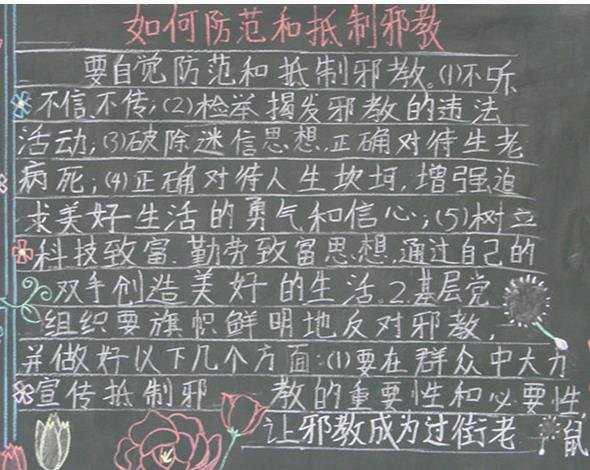 如何防范和抵制邪教
要自觉防范和抵制邪教。(1)不听
不信、不传;(2)检举揭发邪教的违法
活动;(3)破除迷信思想,正确对待生老
病死;(4)正确对待人生坎坷,增强追
求美好生活的勇气和信心;(5)树立
科技致富、勤劳致富思想,通过自己的
双手创造美好的生活。2.基层党
组织要旗帜鲜明地反对邪教,
并做好以下几个方面:(1)要在群众中大力
宣传抵制邪 教的重要性和必要性,
让邪教成为过街老鼠